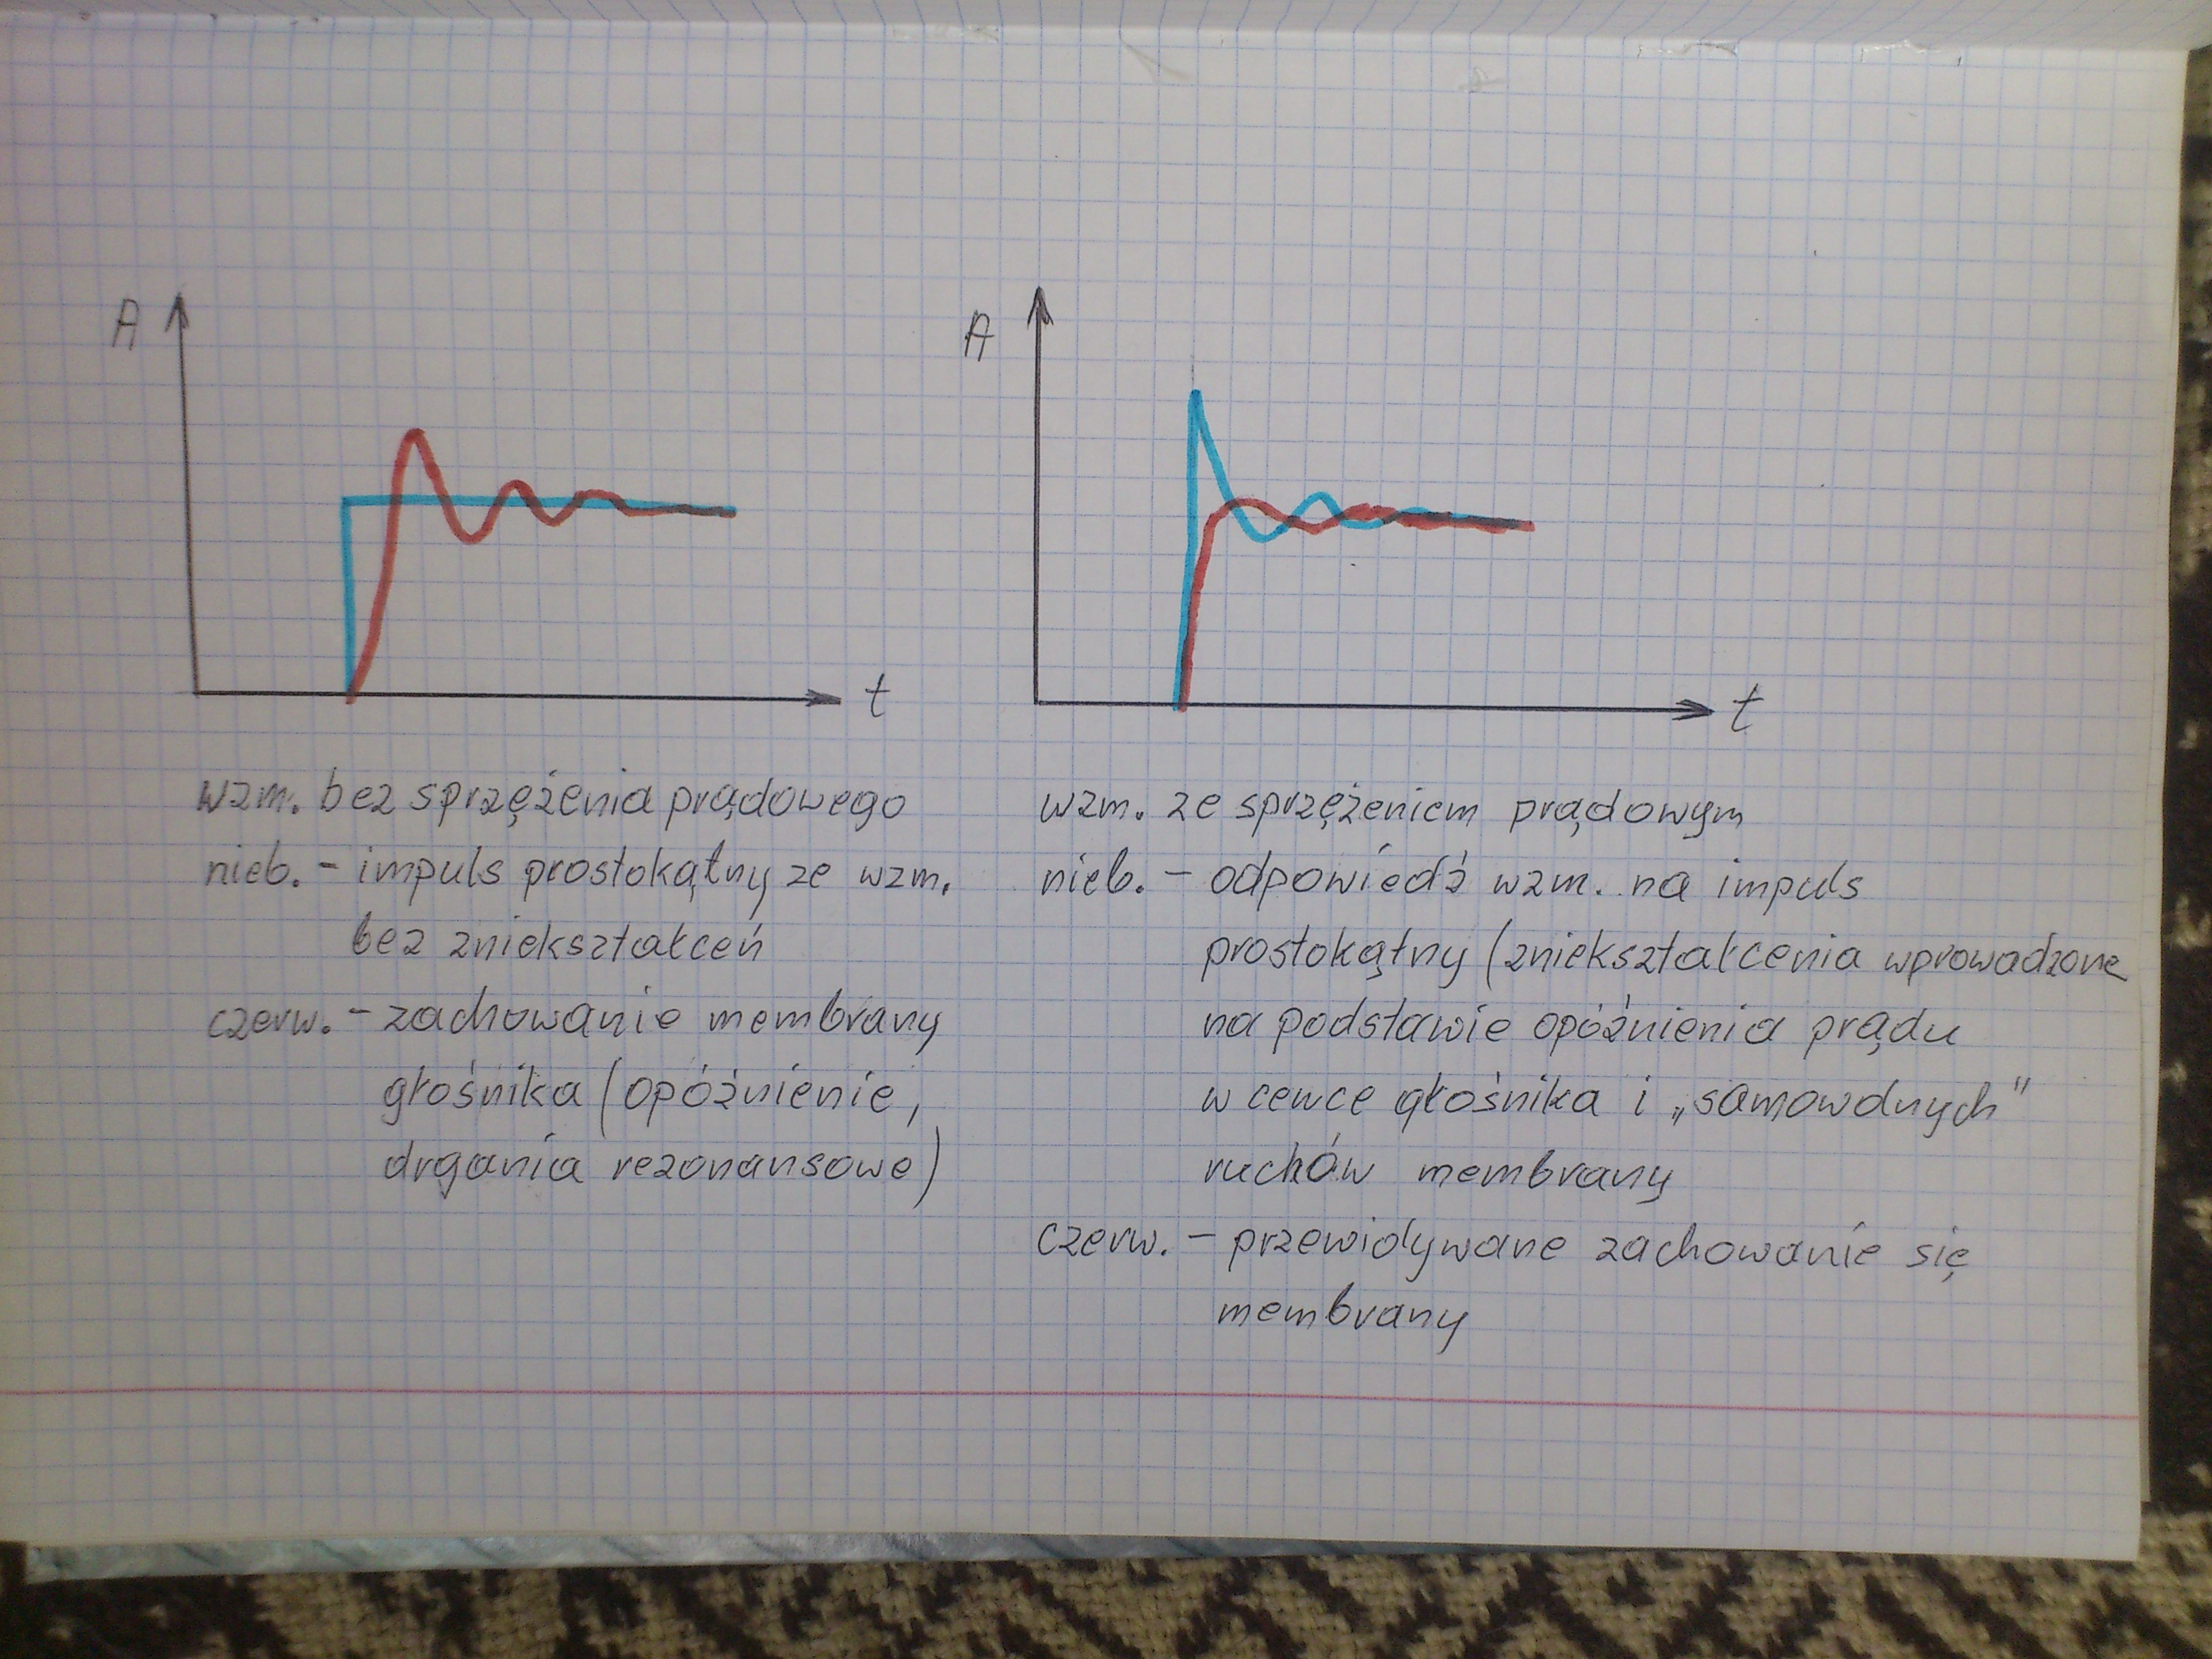 A
t
wzm. bez sprzężenia prądowego
nieb. - impuls prostokątny ze wzm.
bez zniekształceń
czerw. - zachowanie membrany
głośnika (opóźnienie,
drgania rezonansowe)
A
t
wzm. ze sprzężeniem prądowym
nieb. - odpowiedź wzm. na impuls
prostokątny (zniekształcenia wprowadzone
na podstawie opóźnienia prądu
w cewce głośnika i „samowolnych"
ruchów membrany
czerw. - przewidywane zachowanie się
membrany